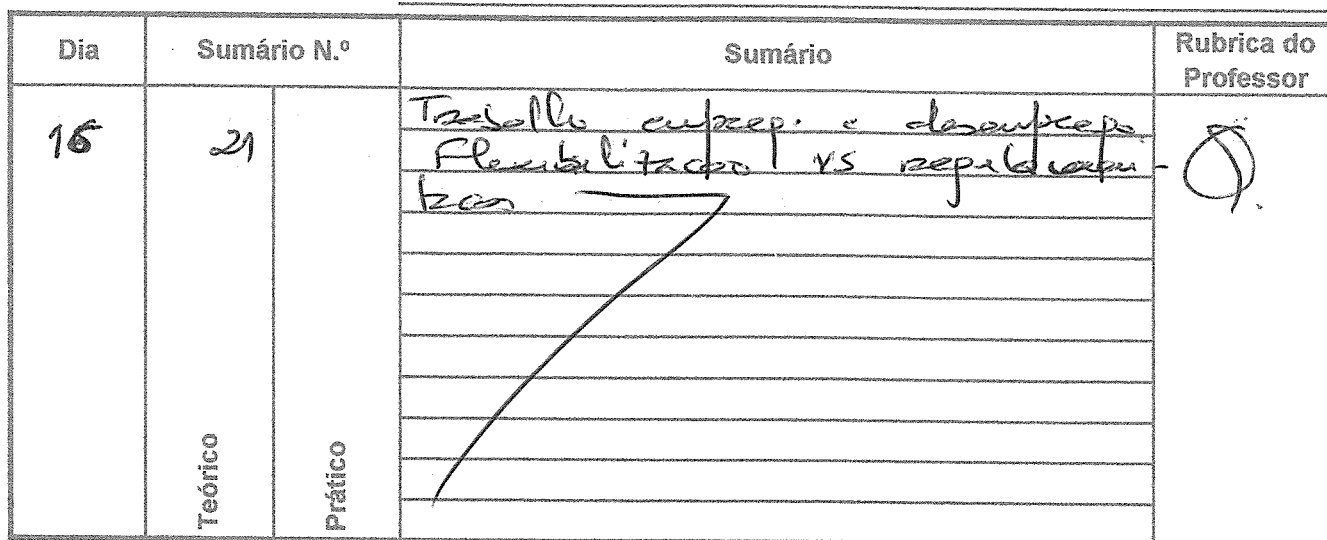 Dia Sumário N.º Sumário Rubrica do Professor
16 21 Trabalho emprego e desemprego.
Flexibilização vs regulamen-
tação
Teórico Prático